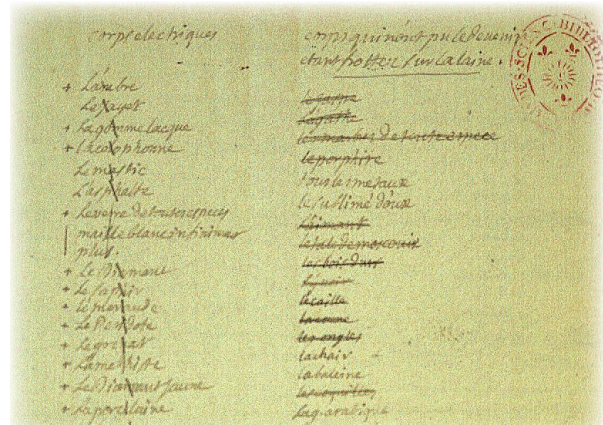 corps electiques
+ L'ambre
Le Jayet
+ La gomme lacque
+ la colophonne
Le mastic
L'asphalte
+ Le verre de toutes especes
maille blanc infiniment
plus.
+ Le Diamant
+ Le saphir
+ le meraude
+ Le Peridote
+ Le grenat
+ L'amethiste
+ Le Diamant jaune
+ La porcelaine
corps qui n'ont pu le devenir
etant frottez sur la laine.
le jaspe
l'agathe
les marbres de toute espece
le porphire
tous les metaux
le sublimé doux
l'aimant
le talc de moscovie
les bois durs
l'yvoir
l'ecaille
la corne
les ongles
la chair
la baleine
les coquilles
la g. arabique